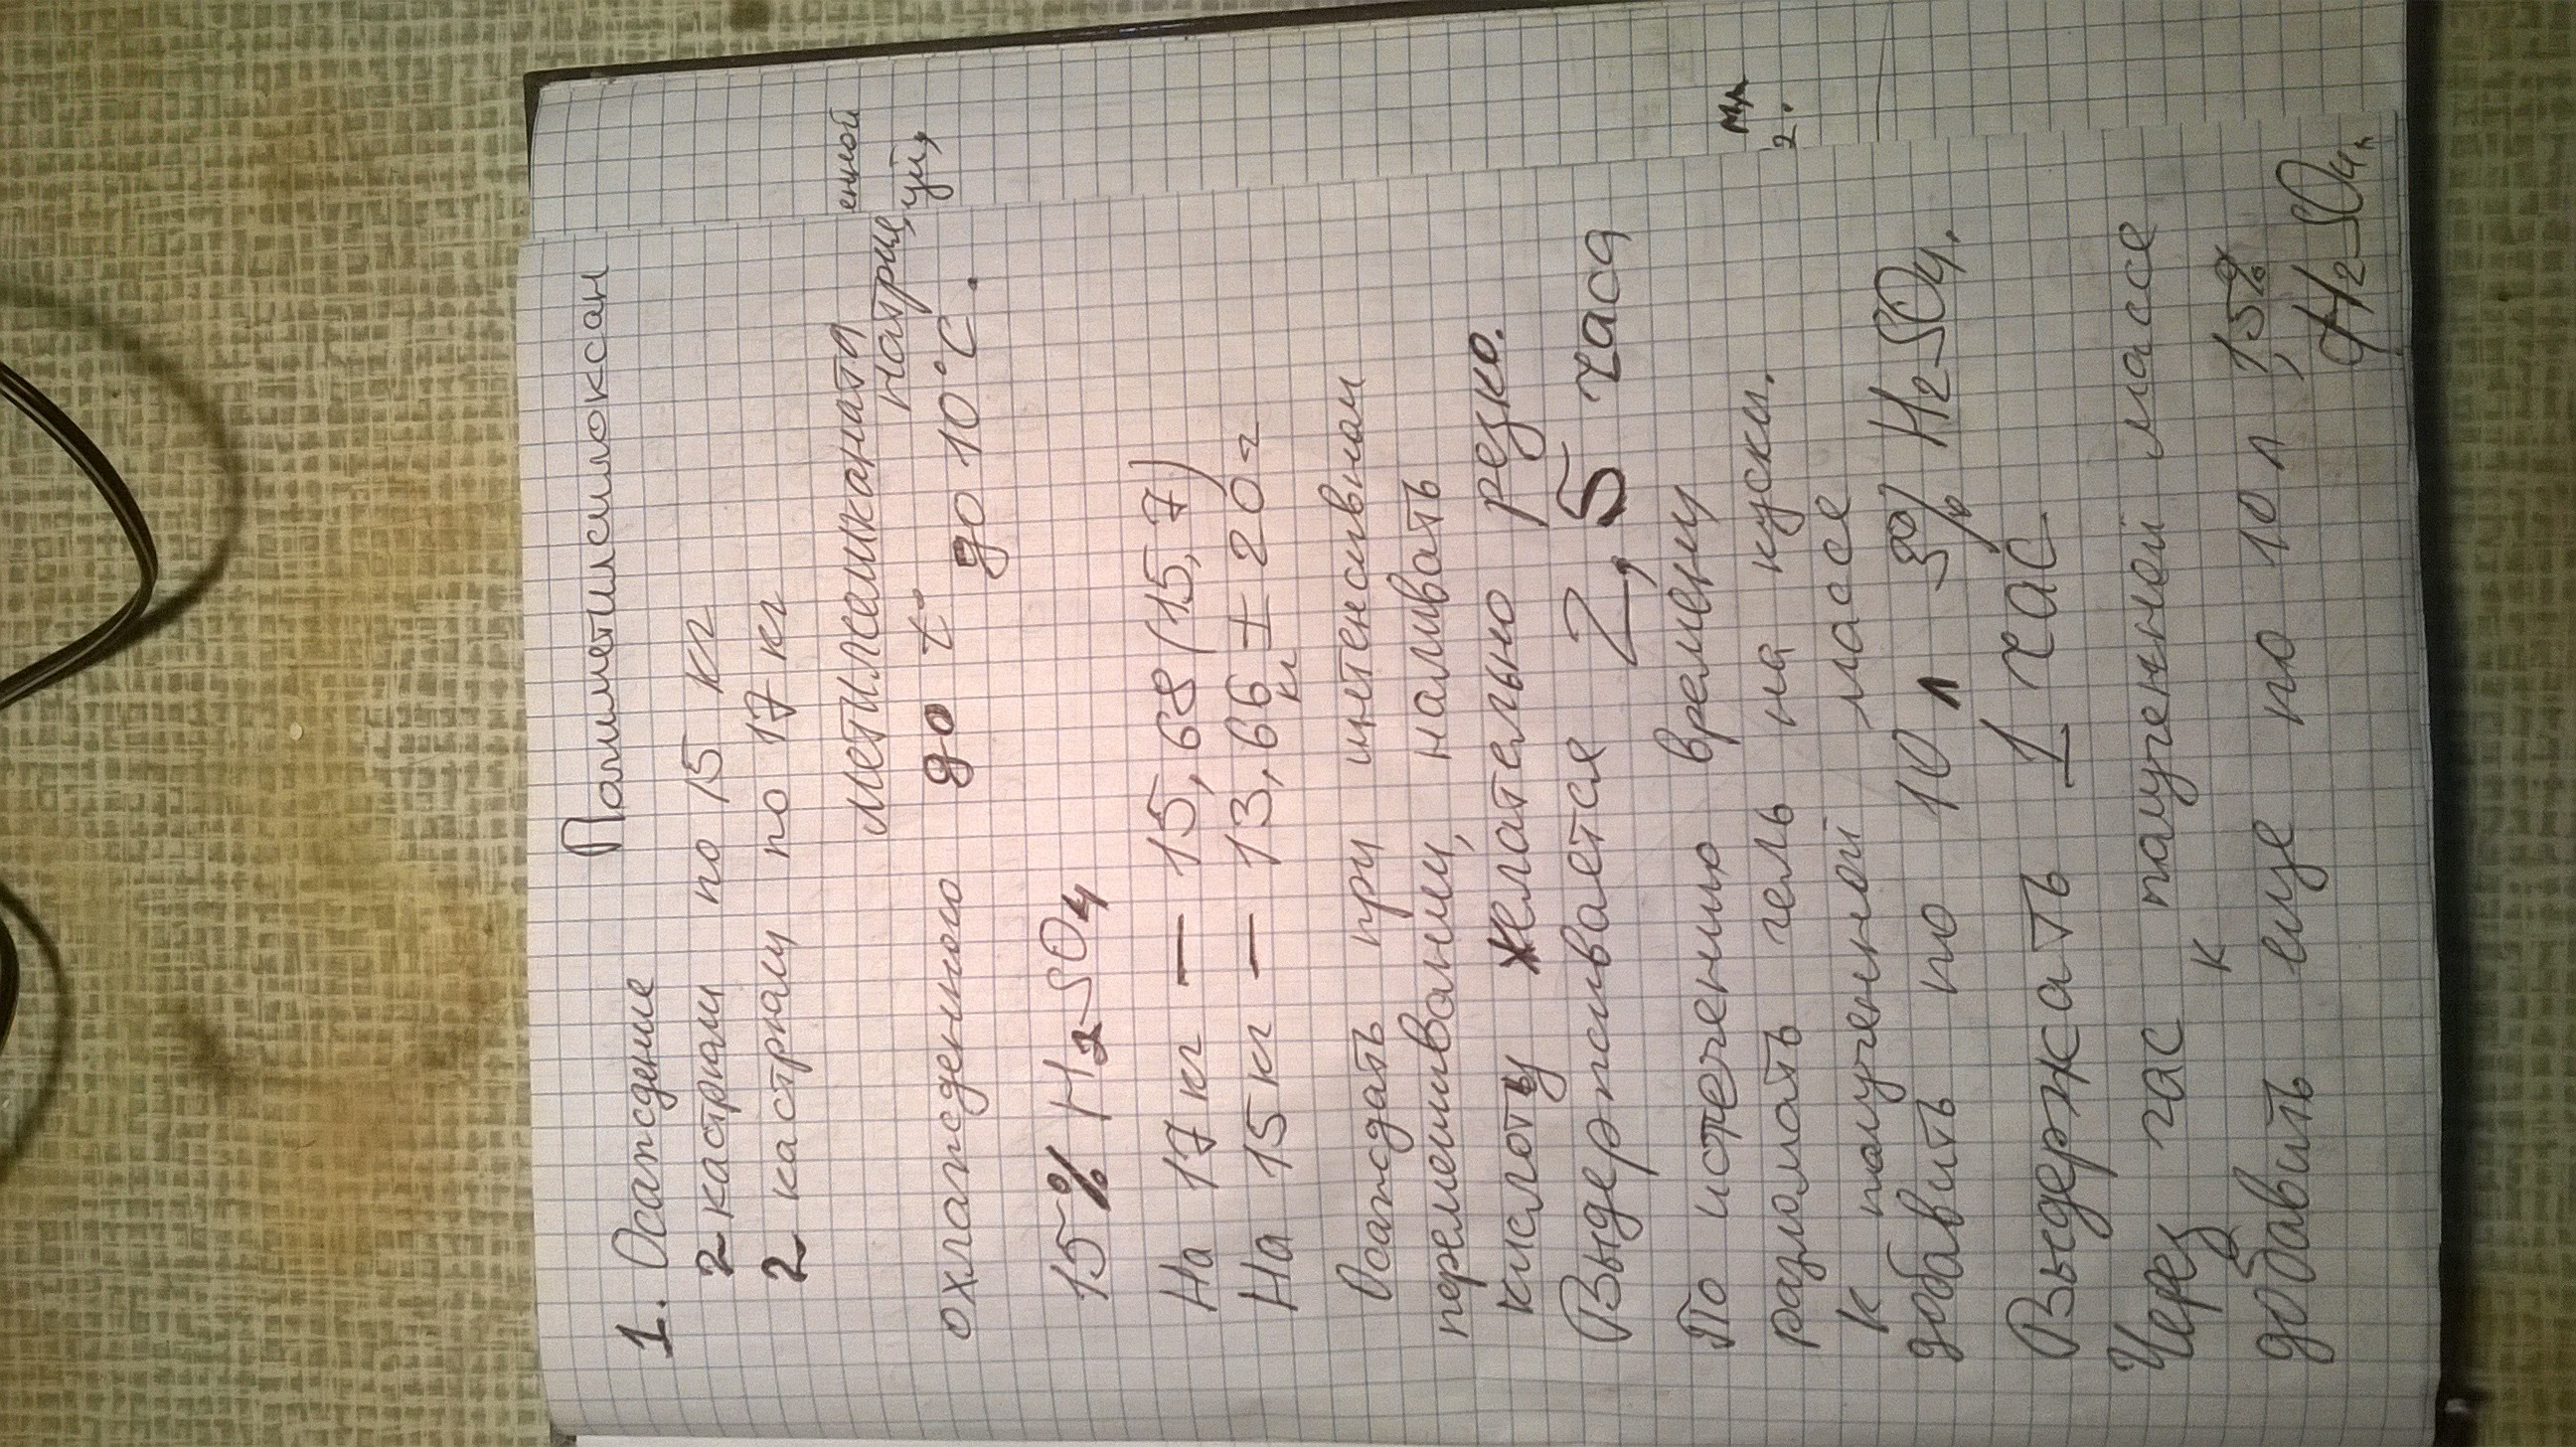 Полиметилсилоксан
1. Осаждение
2 кастрюли по 15 кг
2 кастрюли по 17 кг
метилсиликаната
натрия,
охлажденного до t° до 10°C.
15% H2SO4
На 17 кг — 15,68 (15,7)
На 15 кг — 13,66 ± 20 г
кг
Осаждать при интенсивном
перемешивании, наливать
кислоту желательно резко.
Выдерживается 2,5 часа
По истечению времени
разломать гель на куски.
К полученной массе
добавить по 10 л 3% H2SO4.
Выдержать 1 час
Через час к полученной массе
добавить еще по 10 л 1,5%
H2SO4
енной
уй,
2.